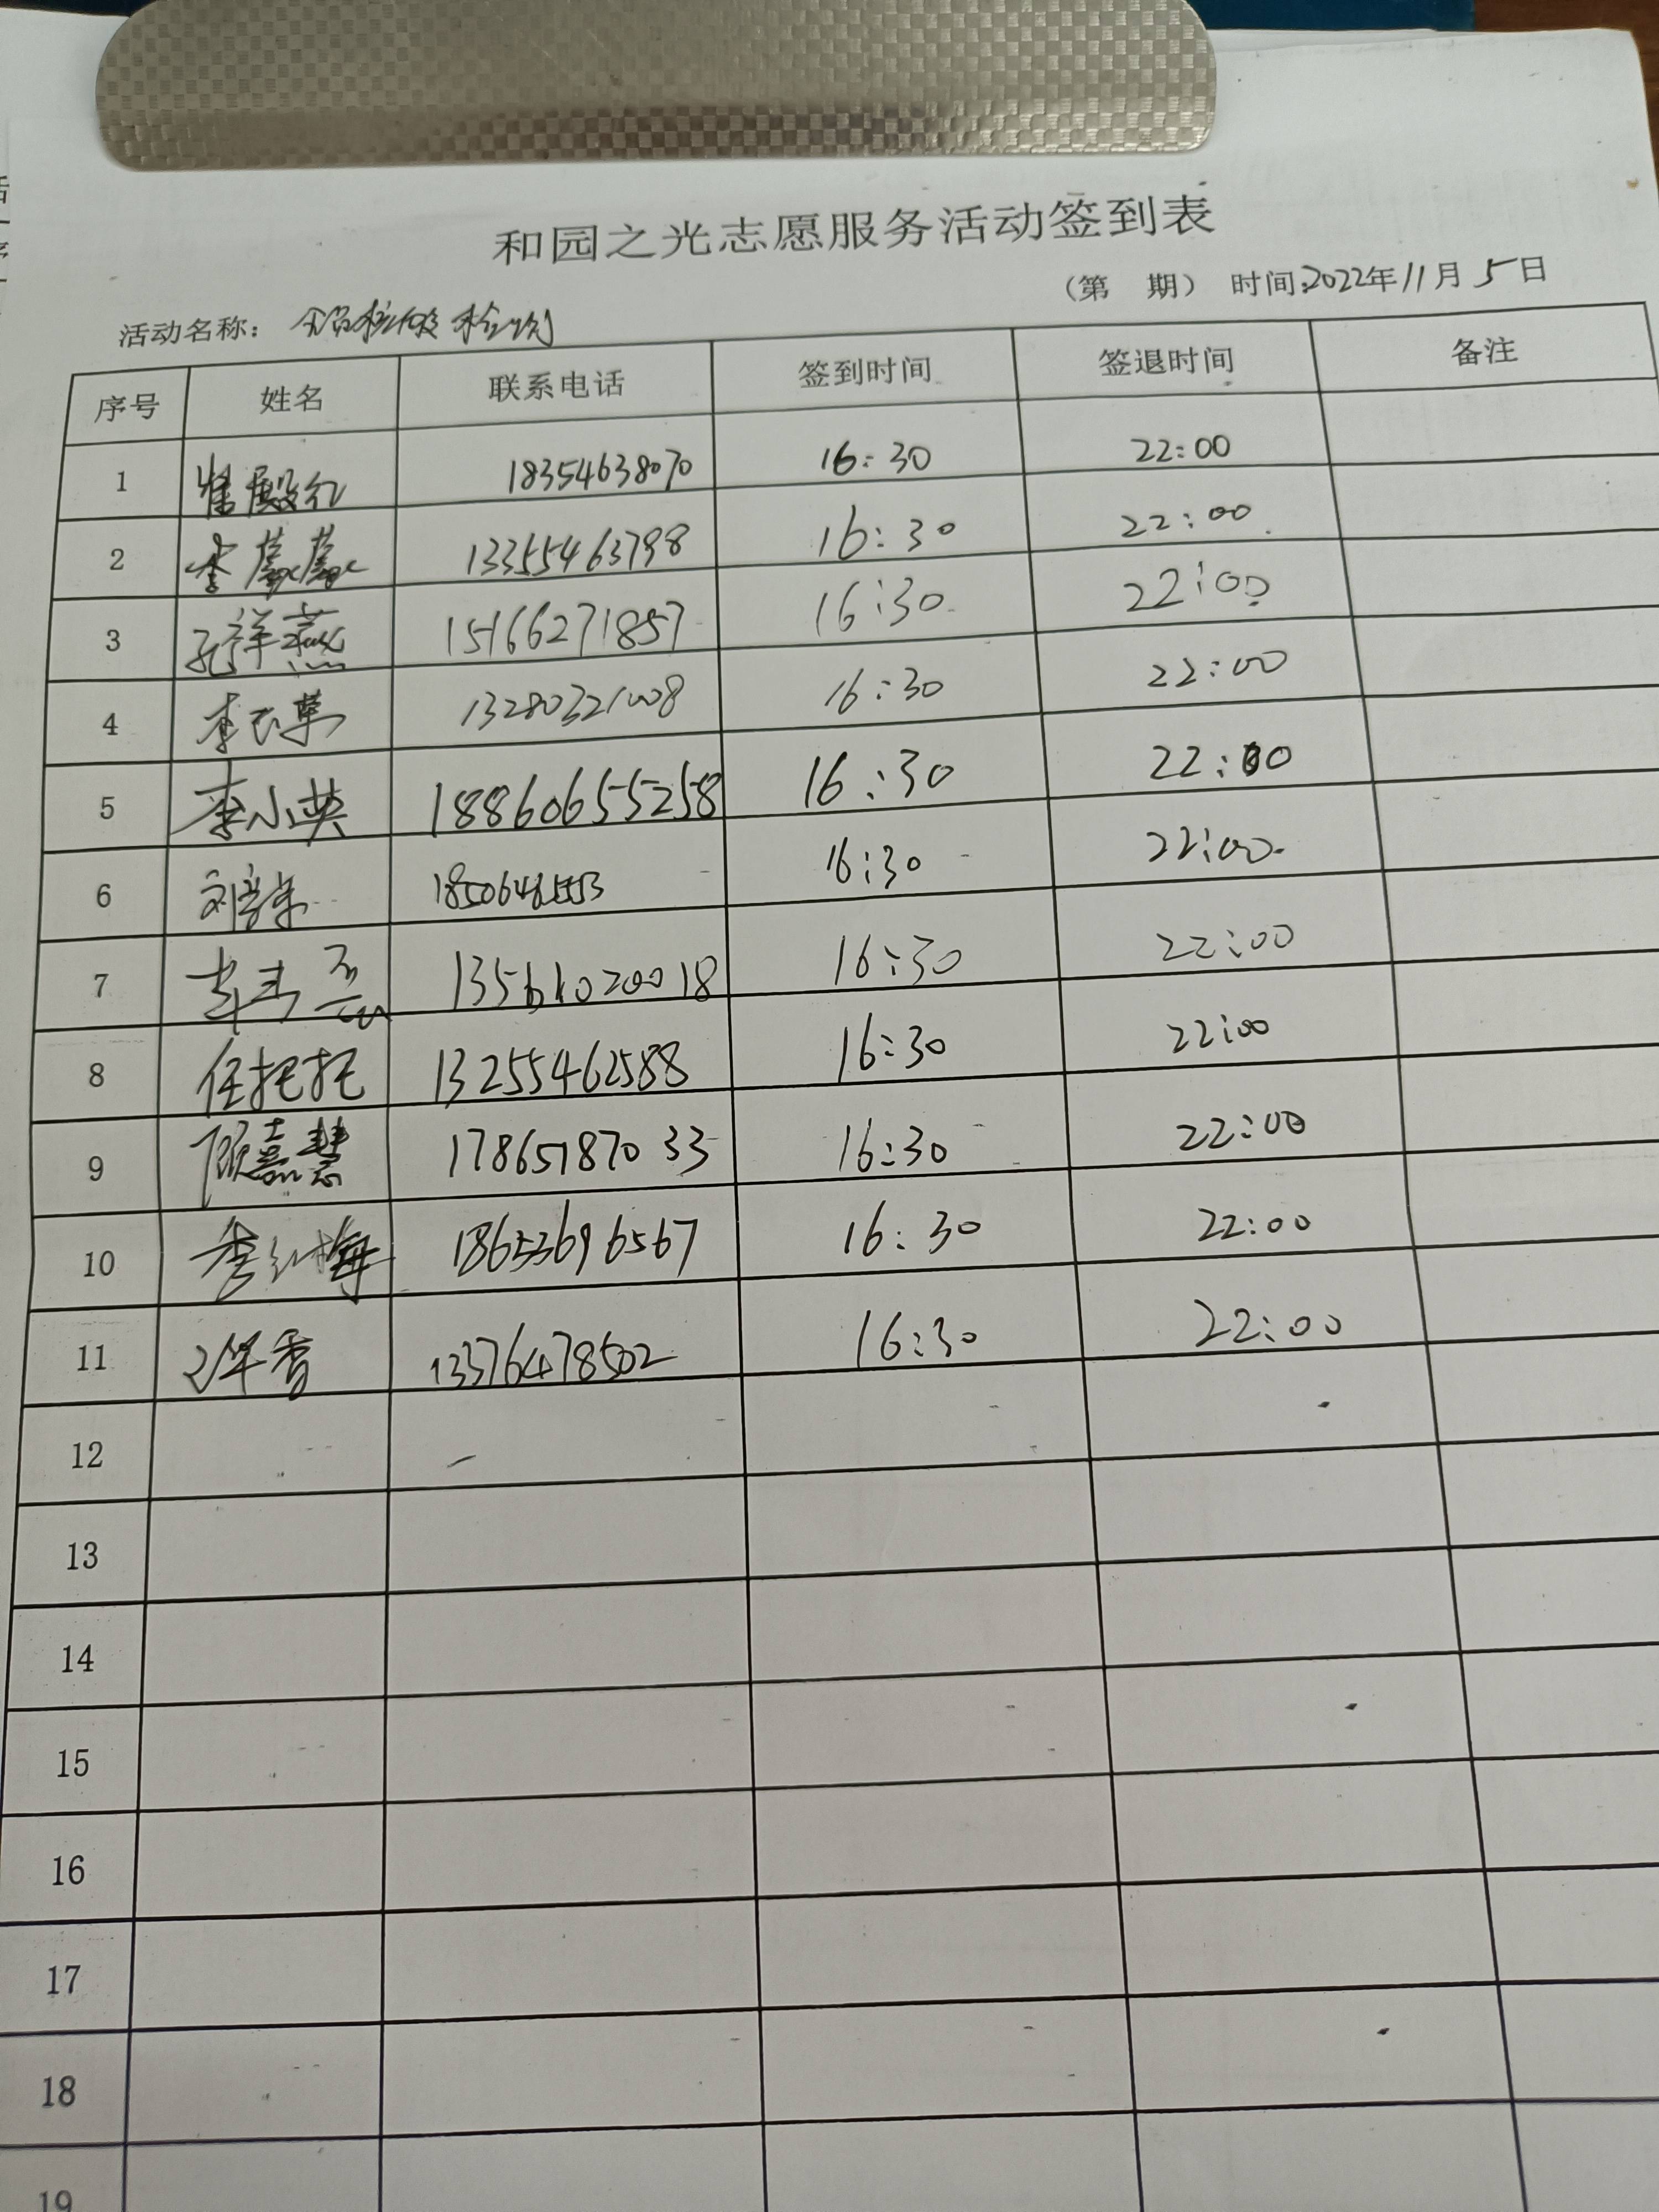 和园之光志愿服务活动签到表
（第 期） 时间:2022年11月5日
活动名称： 全员核酸检测
序号 姓名 联系电话 签到时间 签退时间 备注
1 崔殿红 18354638070 16:30 22:00
2 李蒙蒙 13355463798 16:30 22:00
3 孔祥燕 15166271857 16:30 22:00
4 李玉萍 13280321008 16:30 22:00
5 李小英 18860655258 16:30 22:00
6 16:30 22:00
7 16:30 22:00
8 任把托 13255462588 16:30 22:00
9 顾嘉慧 17865187033 16:30 22:00
10 李红梅 18653696567 16:30 22:00
11 13376478502 16:30 22:00
12
13
14
15
16
17
18
19